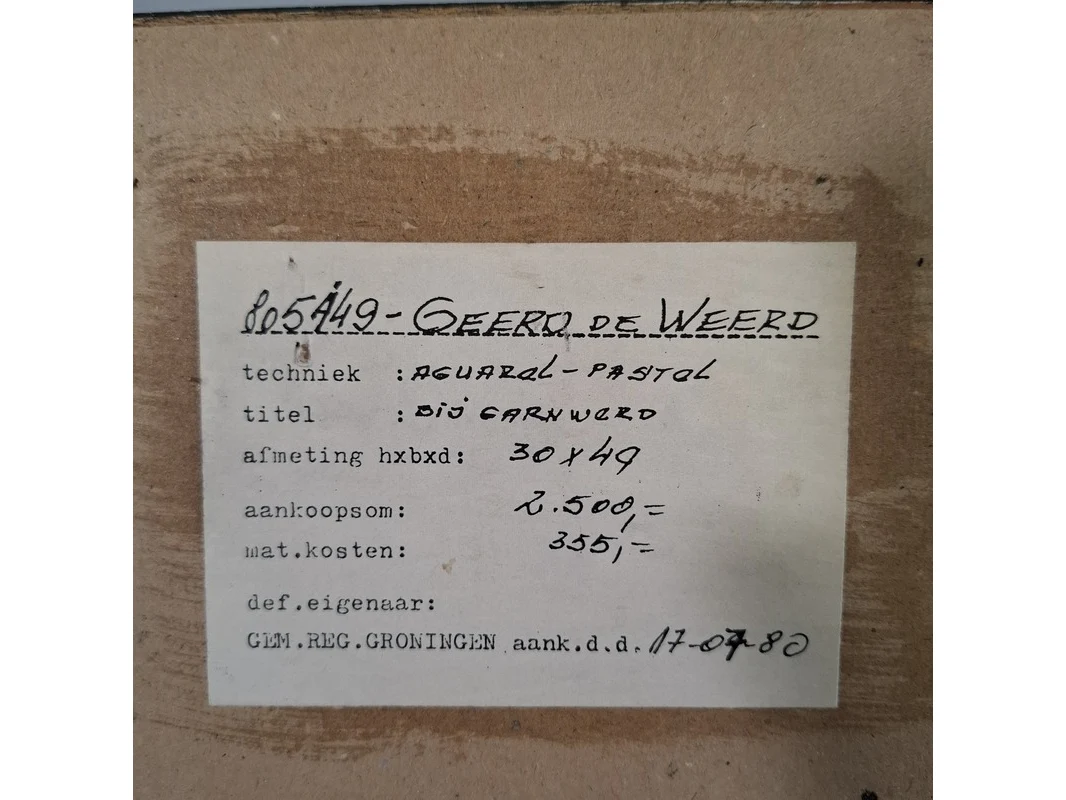 805A49 - GEERD DE WEERD
techniek : AQUAREL - PASTEL
titel : BIJ GARNWERD
afmeting hxbxd: 30 x 49
aankoopsom: 2.500,=
mat.kosten: 355,=
def.eigenaar:
GEM.REG.GRONINGEN aank.d.d. 17-07-80